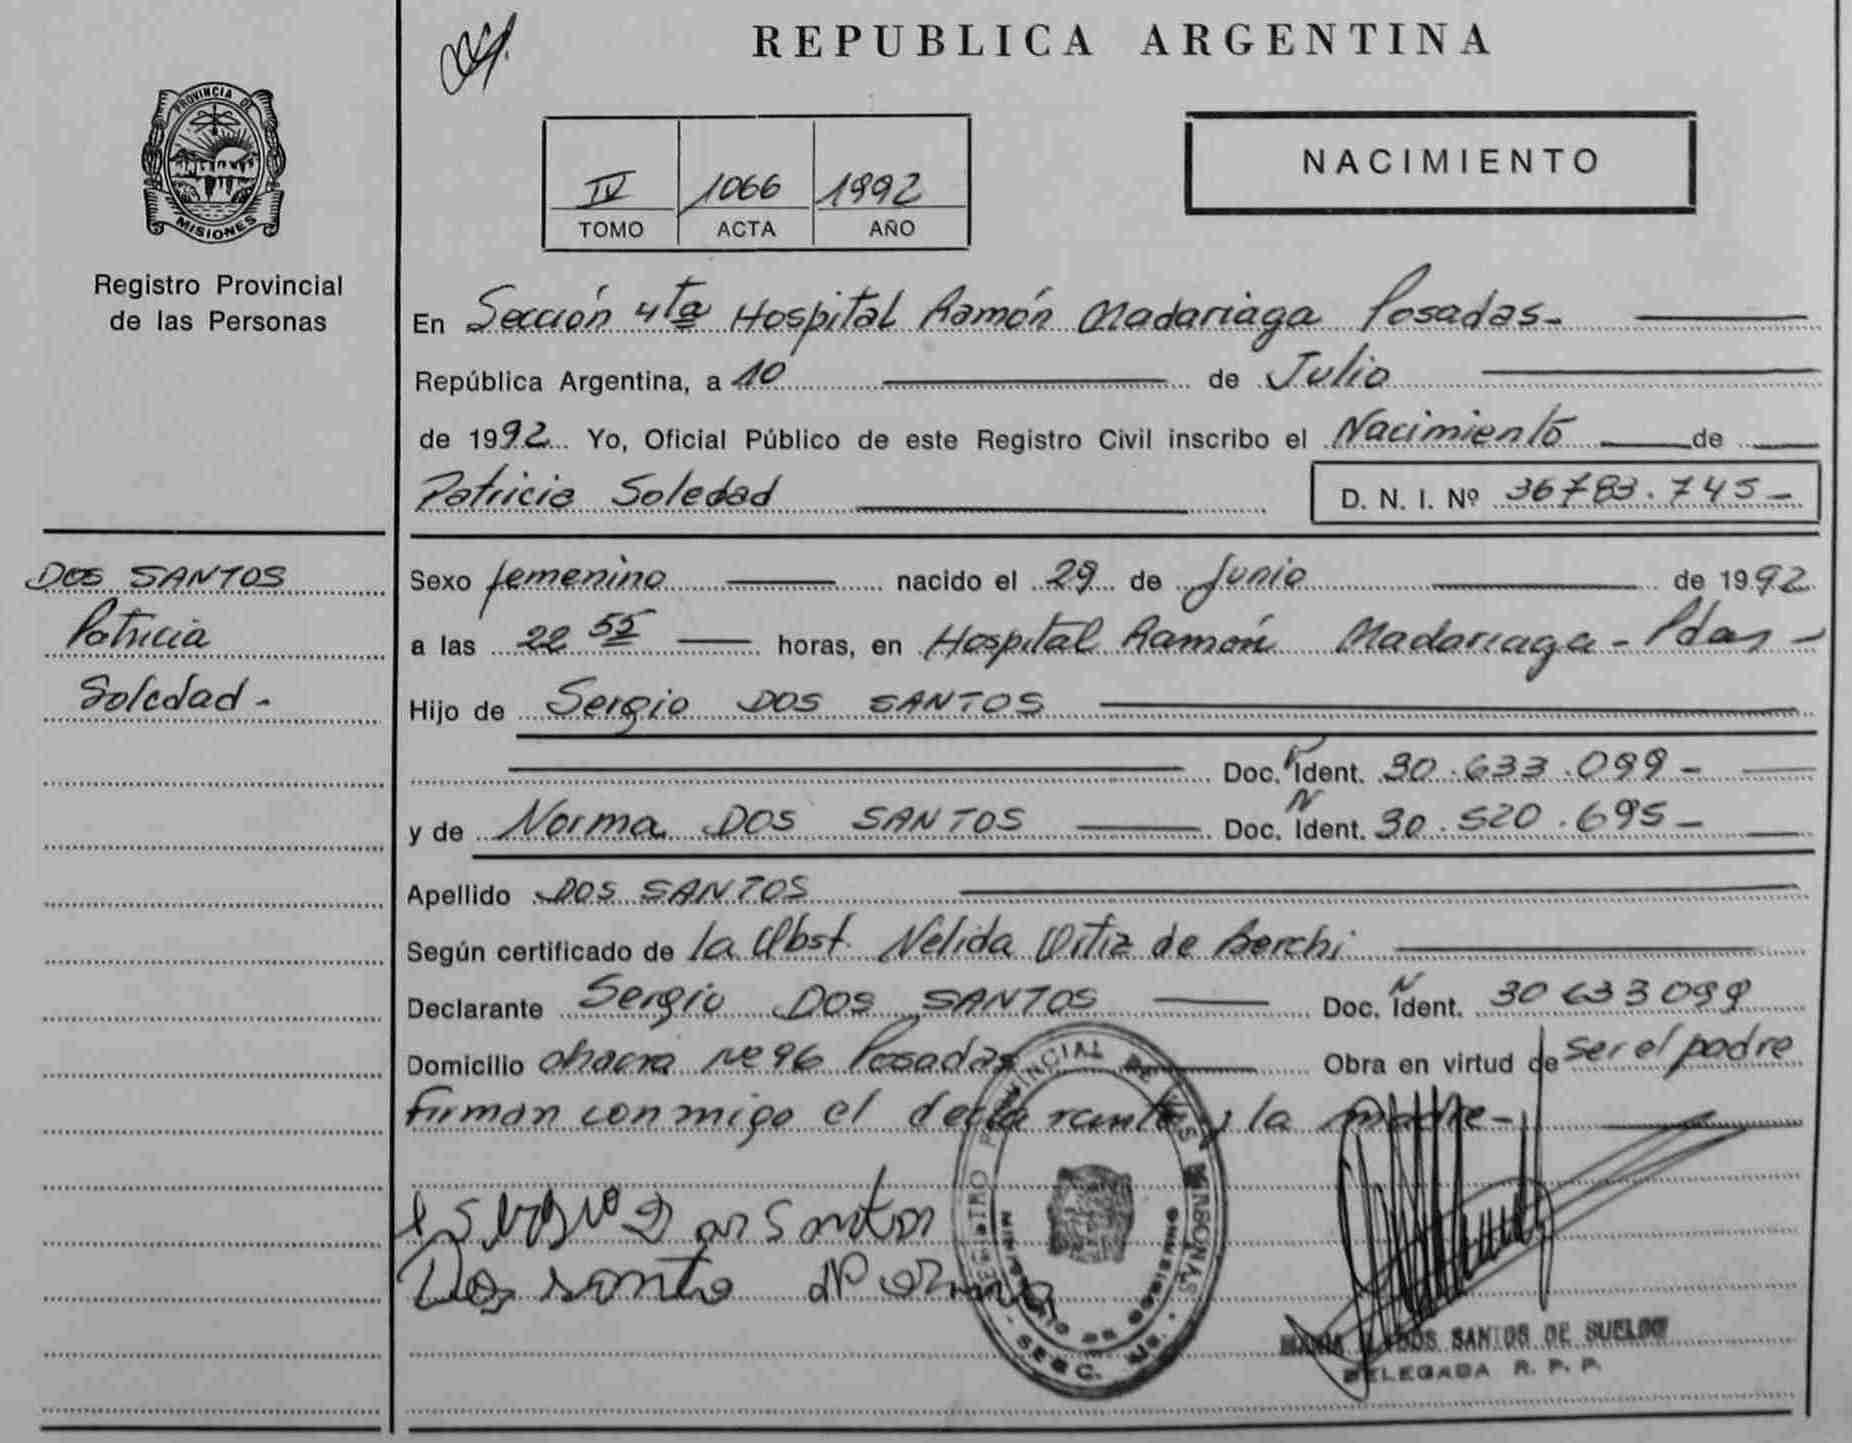 REPUBLICA ARGENTINA
PROVINCIA DE
MISIONES
Registro Provincial
de las Personas
IV 1066 1992
TOMO ACTA AÑO
NACIMIENTO
En Sección 4ta Hospital Ramón Madariaga Posadas-
República Argentina, a 10 de Julio
de 1992 Yo, Oficial Público de este Registro Civil inscribo el Nacimiento de
Patricia Soledad
D. N. I. Nº 36783.745-
DOS SANTOS
Patricia
Soledad-
Sexo femenino nacido el 29 de Junio de 1992
a las 22 55 horas, en Hospital Ramón Madariaga - Pdas-
Hijo de Sergio DOS SANTOS
Doc. Ident. 30.633.099-
y de Norma DOS SANTOS Doc. N Ident. 30.520.695-
Apellido DOS SANTOS
Según certificado de la Obst. Nelida Ortiz de Berchi
Declarante Sergio DOS SANTOS Doc. N Ident. 30633099
Domicilio chacra Nº 96 Posadas Obra en virtud de ser el padre
Firman conmigo el declarante y la madre-
Sergio Dos Santos
Dos santo Norma
REGISTRO PROVINCIAL DE LAS PERSONAS
MINISTERIO DE GOBIERNO
MARIA DOS SANTOS DE SUELDO
DELEGADA R. P. P.